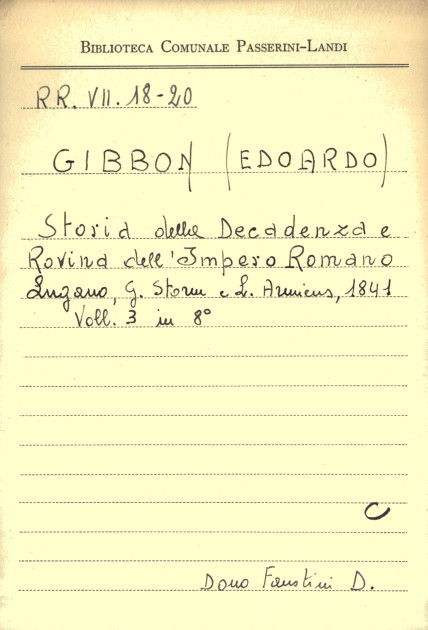 BIBLIOTECA COMUNALE PASSERINI-LANDI
RR. VII. 18-20
GIBBON (EDOARDO)
Storia della Decadenza e
Rovina dell'Impero Romano
Lugano, G. Storm e L. Armiens, 1841
Voll. 3 in 8°
C
Dono Faustini D.